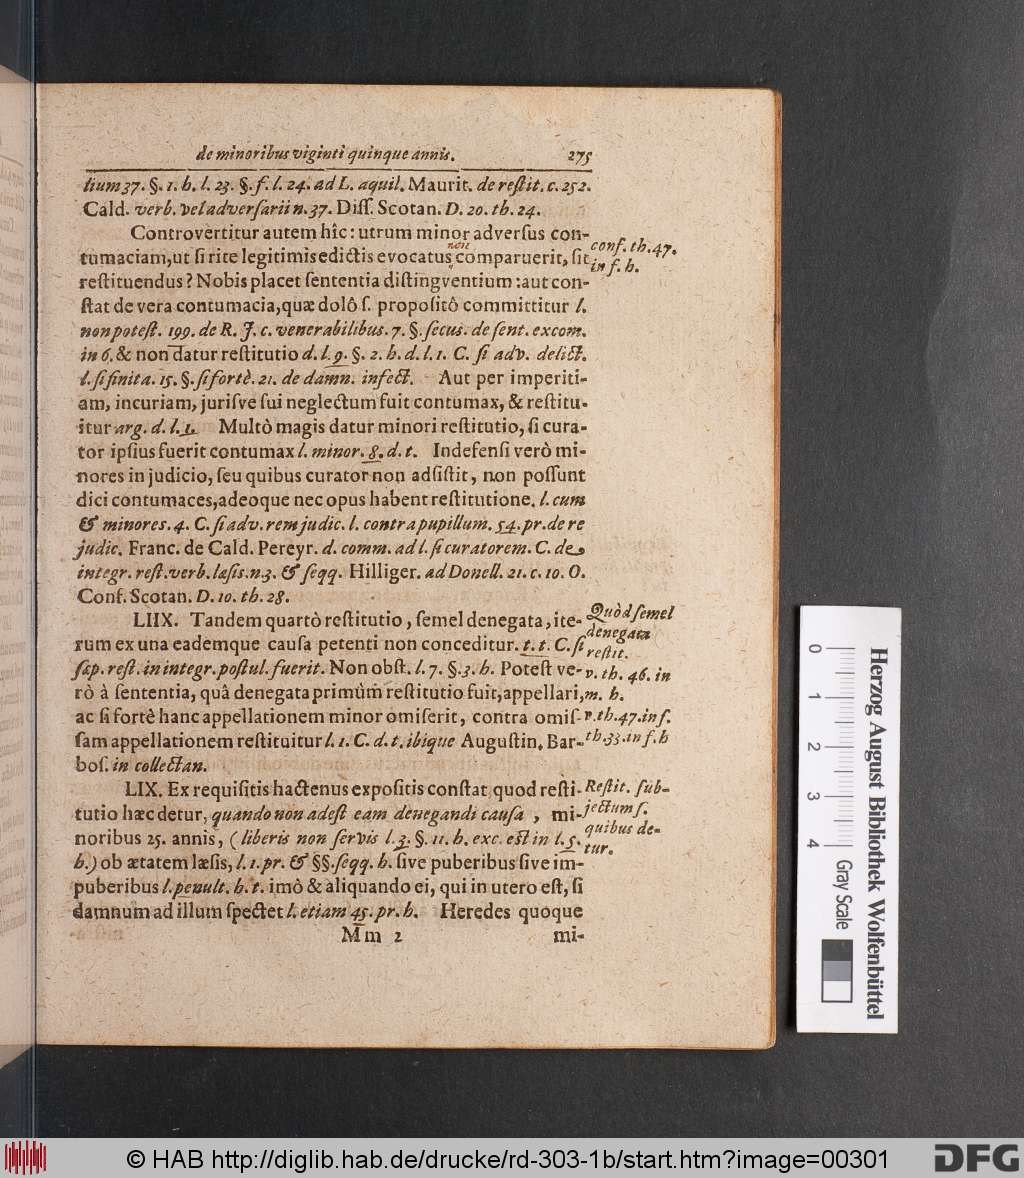 de minoribus viginti quinque annis. 275
lium 37. §. 1. h. l. 23. §. f. l. 24. ad L. aquil. Maurit. de reſtit. c. 252.
Cald. verb. vel adverſarii n. 37. Diſſ. Scotan. D. 20. th. 24.
Controvertitur autem hîc: utrum minor adverſus con-
non
tumaciam, ut ſi rite legitimis edictis evocatus comparuerit, ſit
conf. th. 47.
in f. h.
reſtituendus? Nobis placet ſententia diſtingventium: aut con-
ſtat de vera contumacia, quæ dolô ſ. propoſitô committitur l.
non poteſt. 199. de R. J. c. venerabilibus. 7. §. ſecus. de ſent. excom.
in 6. & non datur reſtitutio d. l. 9. §. 2. h. d. l. 1. C. ſi adv. delict.
l. ſi finita. 15. §. ſi fortè. 21. de damn. infect. Aut per imperiti-
am, incuriam, juriſve ſui neglectum fuit contumax, & reſtitu-
itur arg. d. l. 1. Multò magis datur minori reſtitutio, ſi cura-
tor ipſius fuerit contumax l. minor. 8. d. t. Indefenſi verò mi-
nores in judicio, ſeu quibus curator non adſiſtit, non poſſunt
dici contumaces, adeoque nec opus habent reſtitutione. l. cum
& minores. 4. C. ſi adv. rem judic. l. contra pupillum. 54. pr. de re
judic. Franc. de Cald. Pereyr. d. comm. ad l. ſi curatorem. C. de
integr. reſt. verb. læſis. n. 3. & ſeqq. Hilliger. ad Donell. 21. c. 10. O.
Conf. Scotan. D. 10. th. 28.
LIIX. Tandem quartò reſtitutio, ſemel denegata, ite-
Quòd ſemel
denegata
reſtit.
rum ex una eademque cauſa petenti non conceditur. t. t. C. ſi
ſæp. reſt. in integr. poſtul. fuerit. Non obſt. l. 7. §. 3. h. Poteſt ve-
v. th. 46. in
m. h.
rò à ſententia, quâ denegata primùm reſtitutio fuit, appellari,
ac ſi fortè hanc appellationem minor omiſerit, contra omiſ-
v. th. 47. in f.
ſam appellationem reſtituitur l. 1. C. d. t. ibique Auguſtin. Bar-
th. 33. in f. h
boſ. in collectan.
LIX. Ex requiſitis hactenus expoſitis conſtat, quod reſti-
Reſtit. ſub-
jectum ſ.
quibus de-
tur.
tutio hæc detur, quando non adeſt eam denegandi cauſa, mi-
noribus 25. annis, (liberis non ſervis l. 3. §. 11. h. exc. eſt in l. 5.
h.) ob ætatem læſis, l. 1. pr. & §§. ſeqq. h. ſive puberibus ſive im-
puberibus l. penult. h. t. imò & aliquando ei, qui in utero eſt, ſi
damnum ad illum ſpectet l. etiam 45. pr. h. Heredes quoque
Mm 2 mi-
0 1 2 3 4 Gray Scale
Herzog August Bibliothek Wolfenbüttel
© HAB http://diglib.hab.de/drucke/rd-303-1b/start.htm?image=00301
DFG